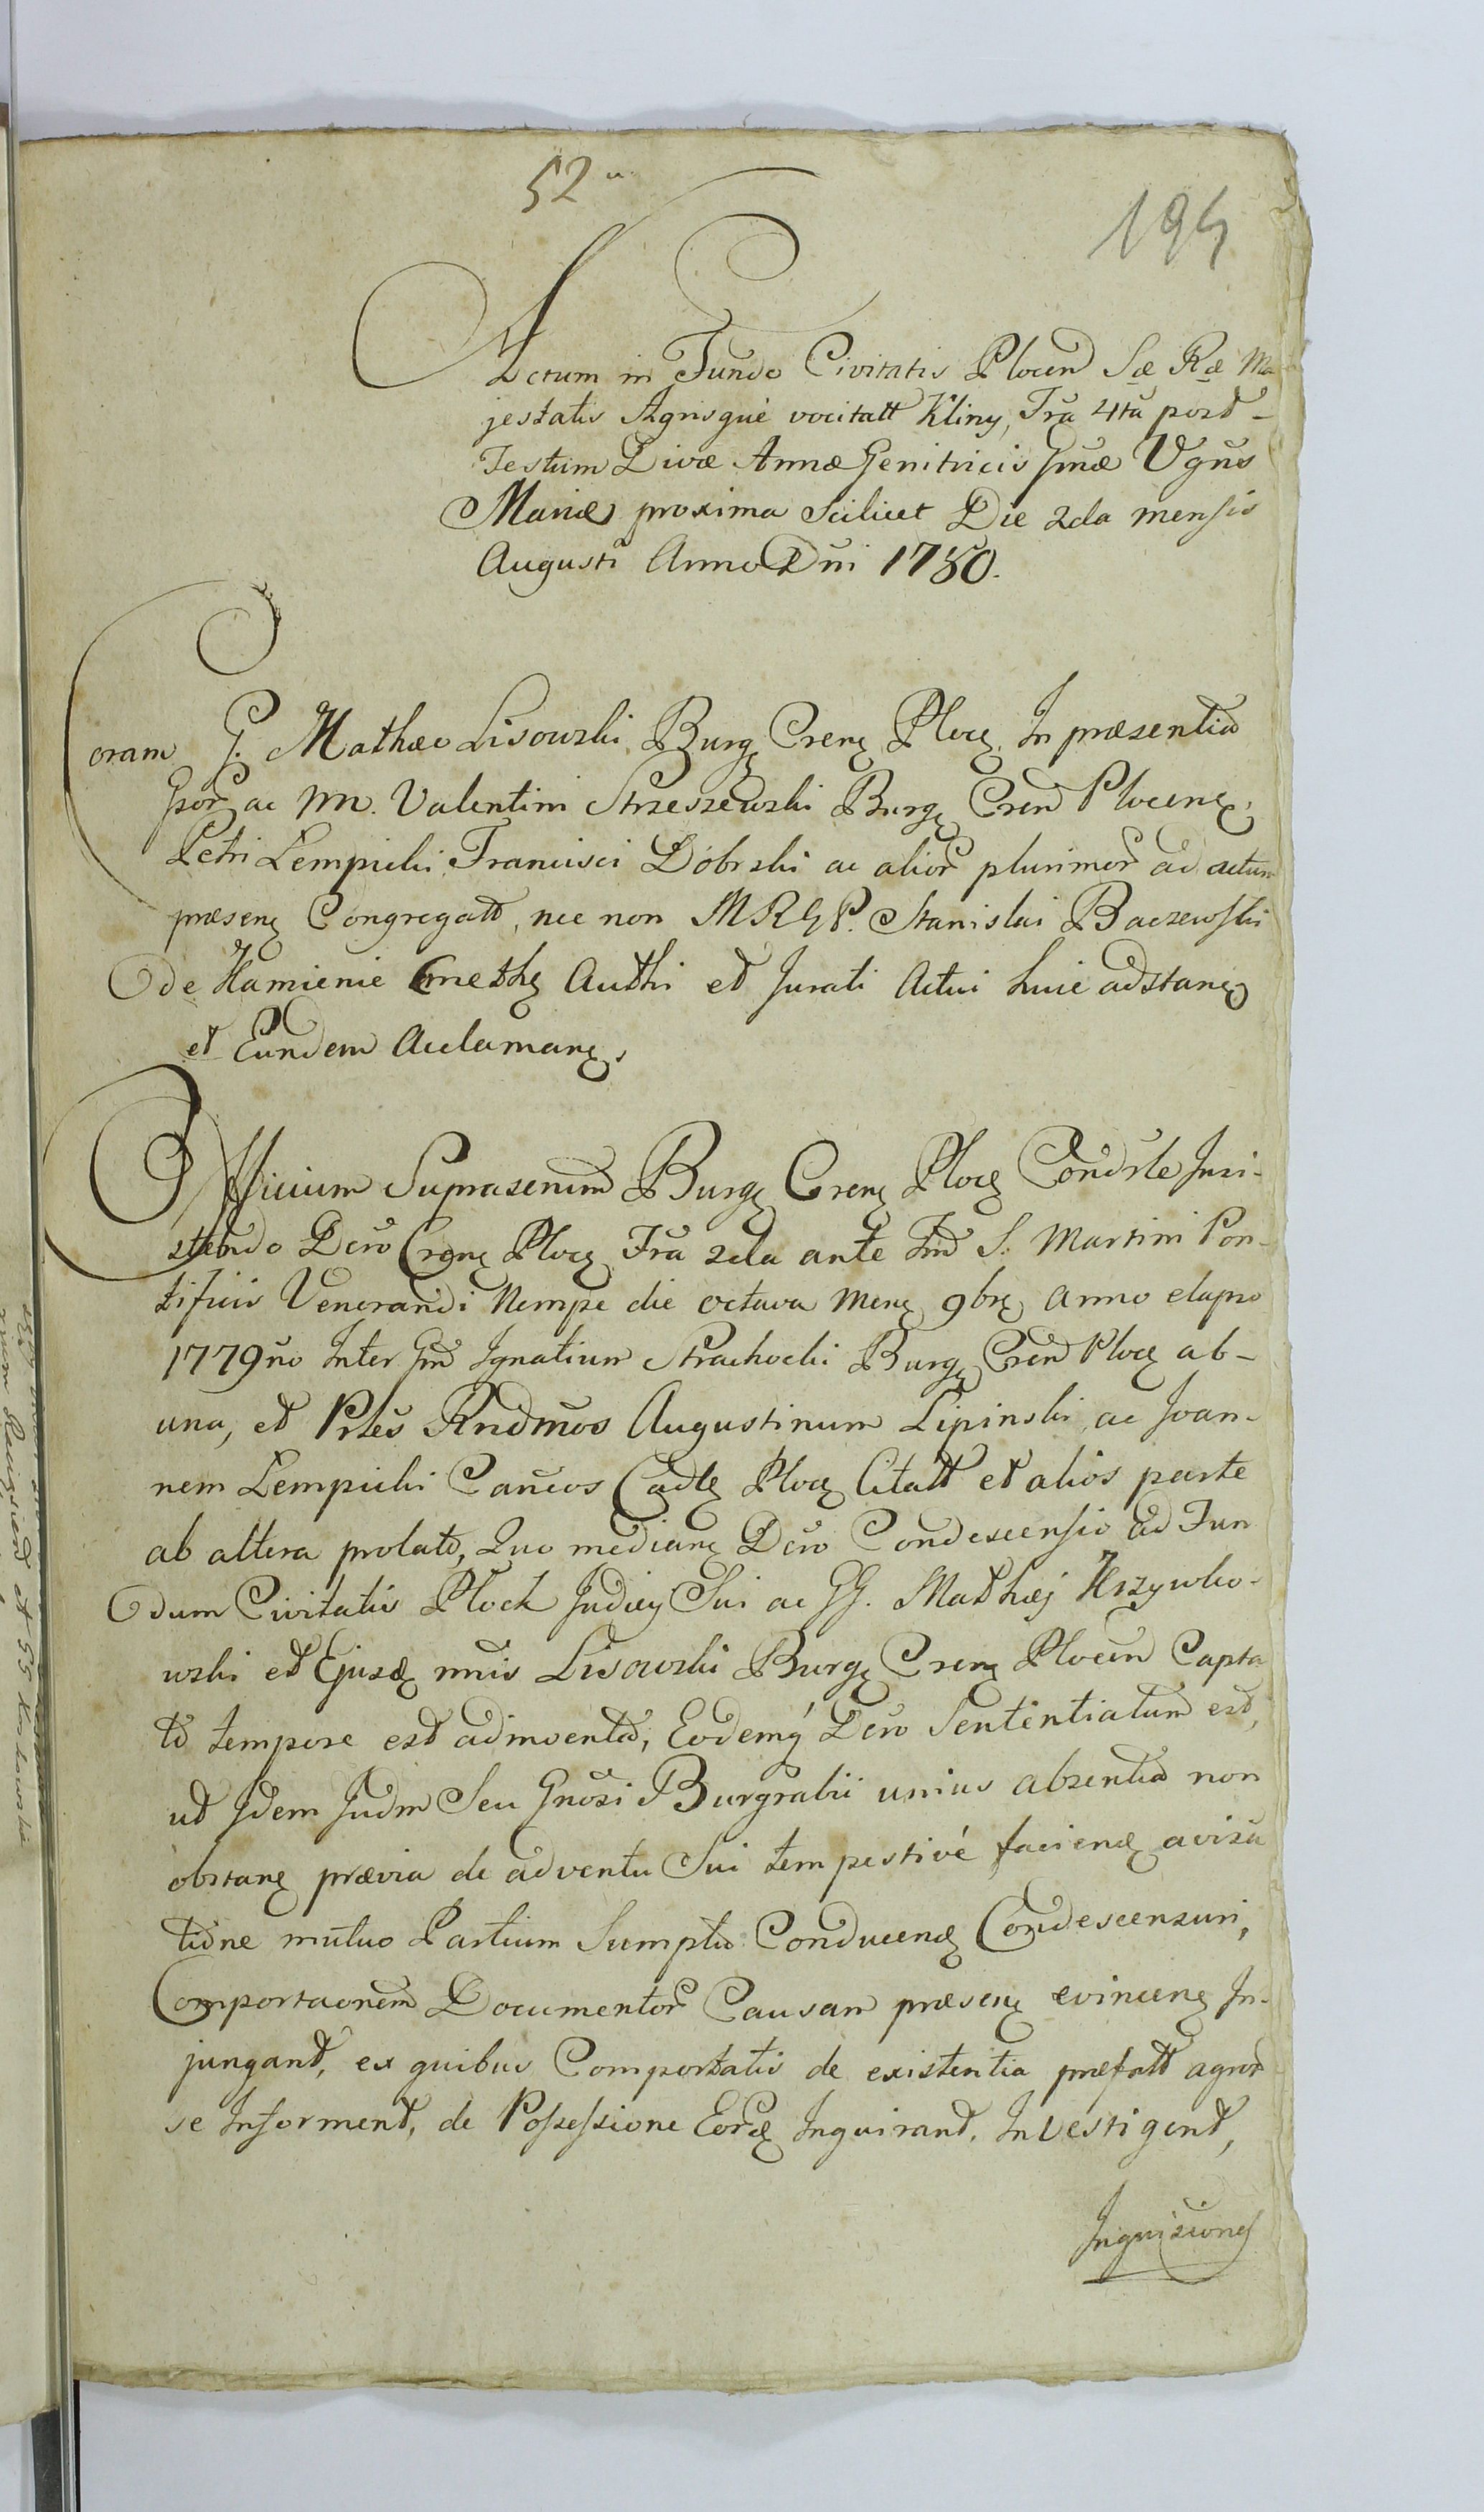 52
194
Actum in Fundo Civitatis Plocen Sæ Ræ Ma
jestatis Agrisquè vocitatt Kliny, Fra 4ta post
Festum Divæ Annæ Genitricis Gmæ Vgns
Mariæ proxima scilicet Die 2da mensis
Augusti Anno Dni 1780.
Coram G. Mathæo Lisowski Burg Cren Ploc In præsentia
Gsor ac M. Valentini Strzeszewski Burg Cren Plocen,
Petri Lempicki Francisci Dobrski ac alior plurimor ad actum
præsen Congregatt, nec non MRGP. Stanislai Baczewski
de Kamienie Cmeth Authi et Jurati Actui huic adstan
et Eundem Acclaman,
Officium Suprascrium Burg Cren Ploc Condsle Insi-
stendo Dcro Cren Ploc Fra 2da ante Fm S. Martini Pon-
tificis Venerandi Nempe die octava Men 9br anno elapso
1779no Inter Gm Ignatium Strachocki Burg Cren Ploc ab-
una, et Prles Rndmos Augustinum Lipinski, ac Joan-
nem Lempicki Cancos Cadl Ploc Citatt et alios parte
ab altera prolato, Quo median Dcro Condescensio ad Fun
dum Civitatis Plock Judicy Sui ac GG. Mathæj Krzywko-
wski et Ejusd nnis Lisowski Burg Cren Plocen Capta
to tempore est adinventa, Eodemq Dcro Sententiatum est,
ut Idem Judm Seu Gnosi Burgrabii unius absentia non
obstan prævia de adventu Sui tempestivé faciend avisa
tione mutuo Partium Sumptu Conducend Condescensuri,
Comportaonem Documentor Causam præsen evincen In-
jungant, ex quibus Comportatis de existentia præfatt agror
se Informent, de Possessione Eord Inquirant, Investigent,
Inquisiones